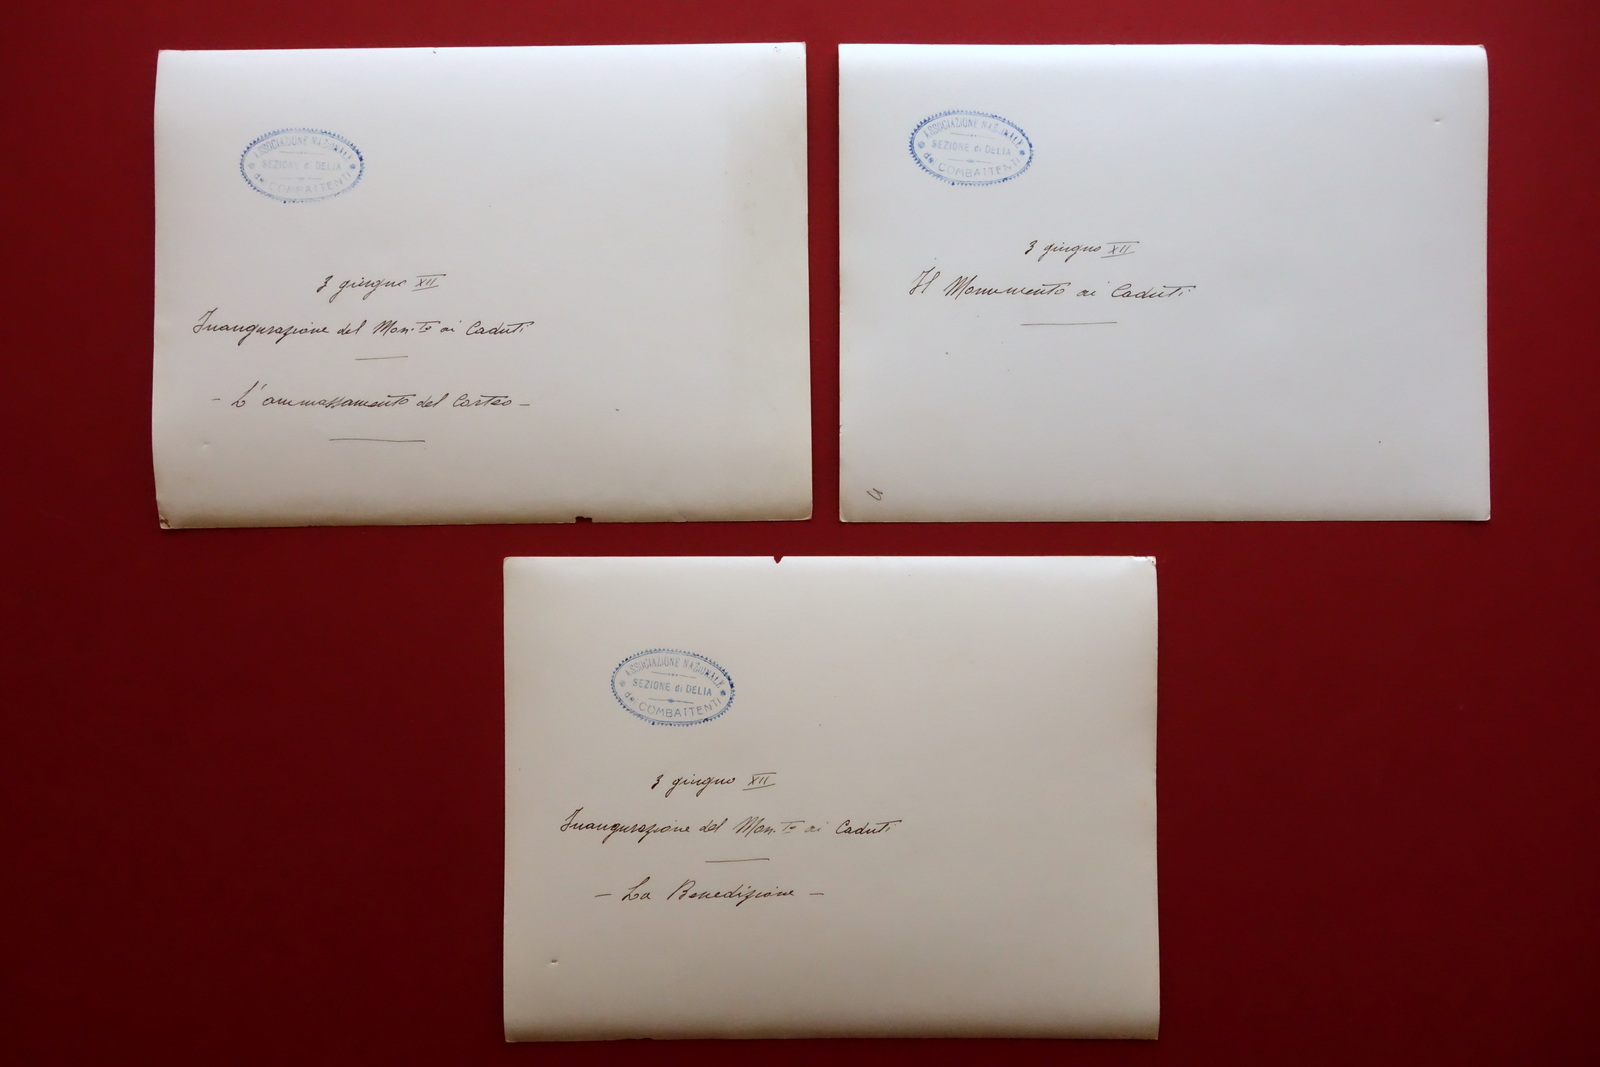 ASSOCIAZIONE NAZIONALE
SEZIONE di DELIA
dei COMBATTENTI
3 giugno XII
Inaugurazione del Mon.to ai Caduti
- L'ammassamento del Corteo -
ASSOCIAZIONE NAZIONALE
SEZIONE di DELIA
dei COMBATTENTI
3 giugno XII
Il Monumento ai Caduti
ASSOCIAZIONE NAZIONALE
SEZIONE di DELIA
dei COMBATTENTI
3 giugno XII
Inaugurazione del Mon.to ai Caduti
- La Benedizione -